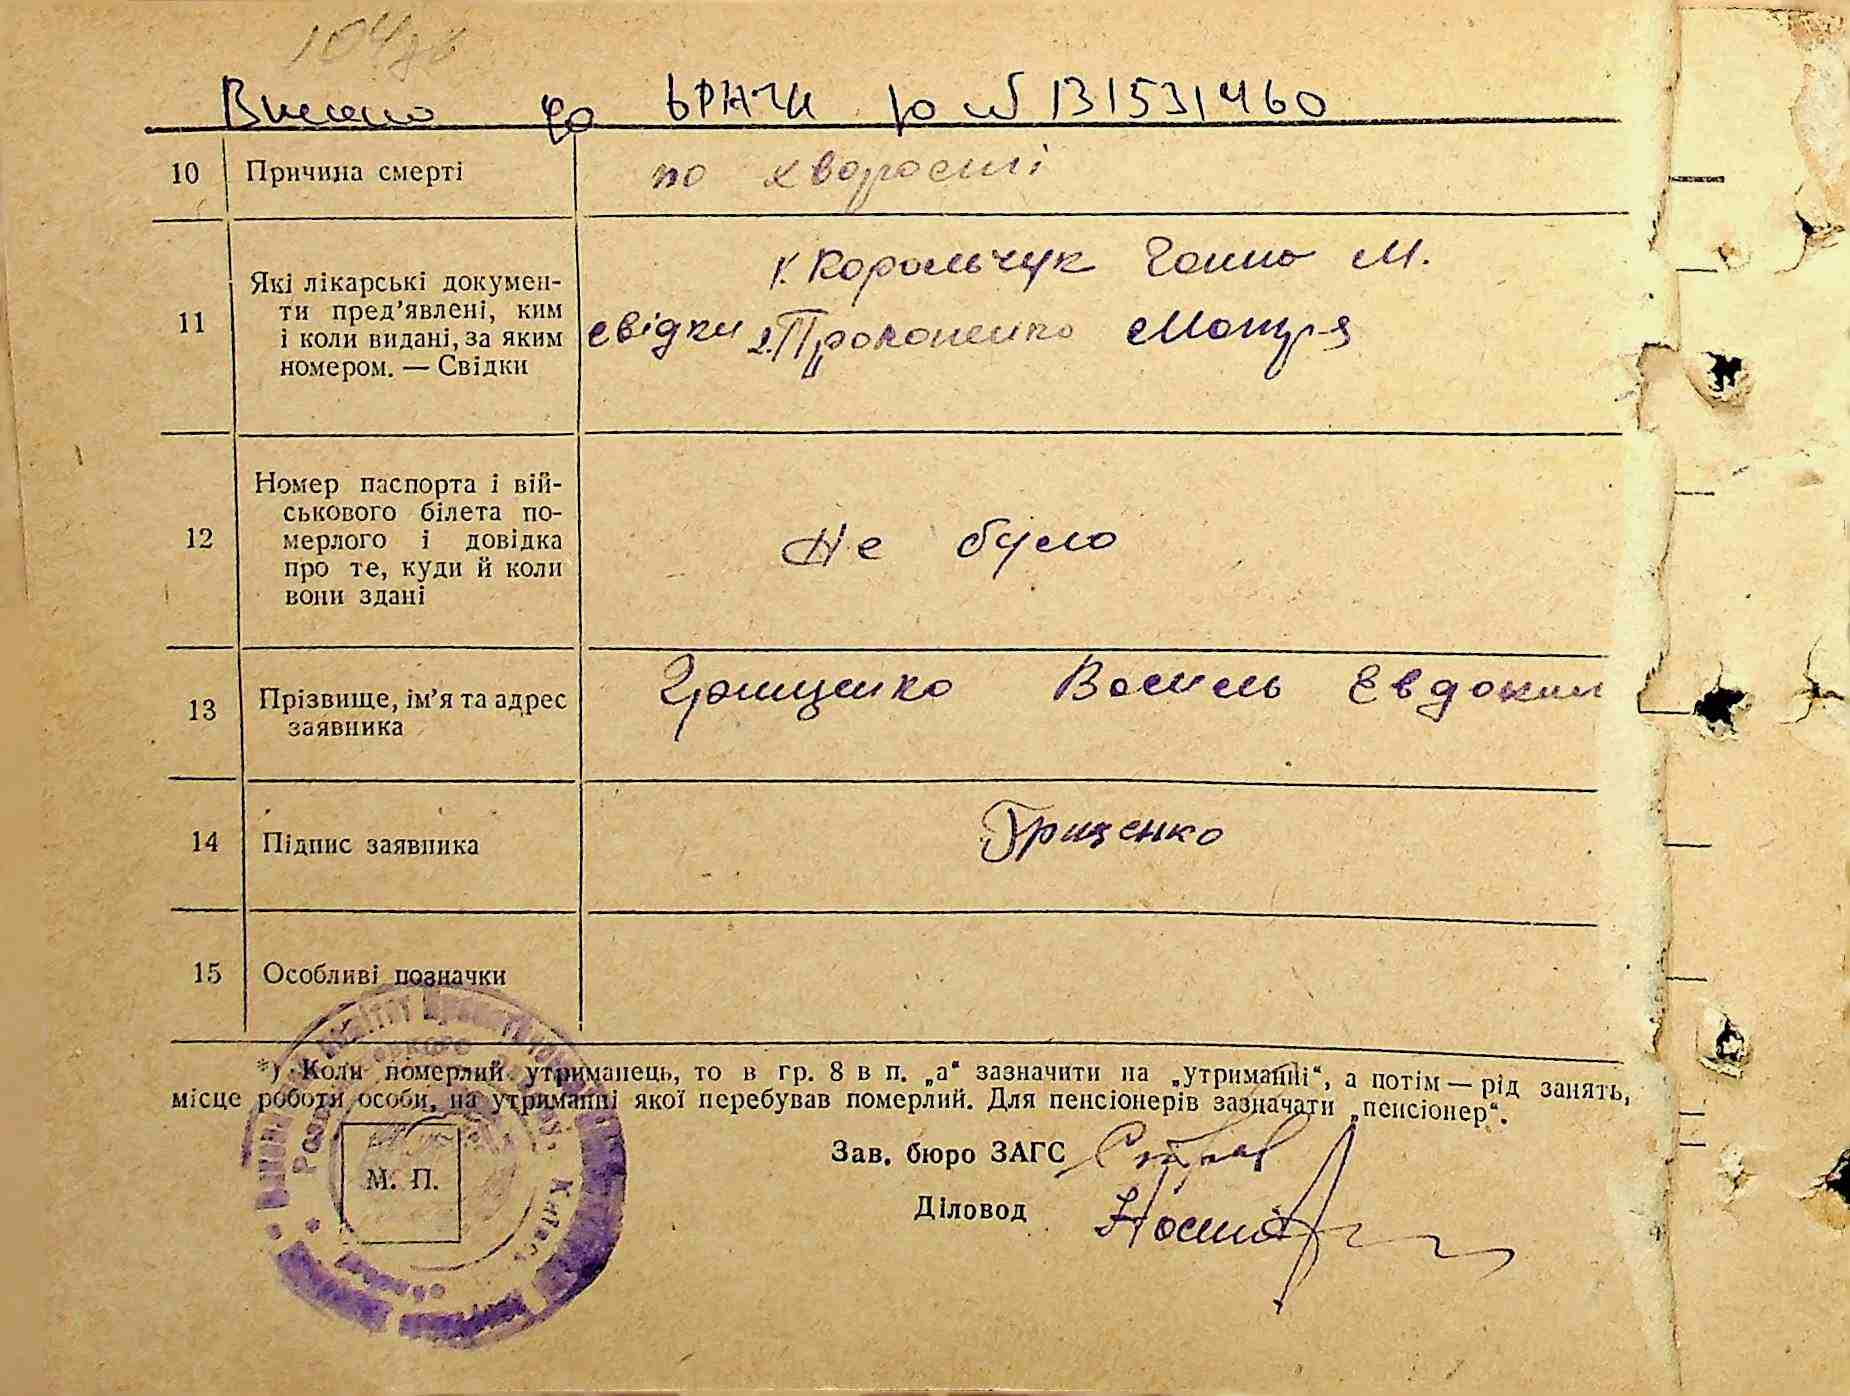 Внесено до ДРАЦС за № 131531460
10 Причина смерті по хворості
1. Корольчук Ганна М.
11 Які лікарські докумен-
ти пред’явлені, ким
і коли видані, за яким
номером. — Свідки
свідки 2. Прокопенко Мотря
12 Номер паспорта і вій-
ськового білета по-
мерлого і довідка
про те, куди й коли
вони здані
Не було
13 Прізвище, ім’я та адрес
заявника
Грищенко Василь Евдоким
14 Підпис заявника Грищенко
15 Особливі позначки
*) Коли померлий утриманець, то в гр. 8 в п. „а“ зазначити на „утриманні“, а потім — рід занять,
місце роботи особи, на утриманні якої перебував померлий. Для пенсіонерів зазначати „пенсіонер“.
Зав. бюро ЗАГС
М. П.
Діловод